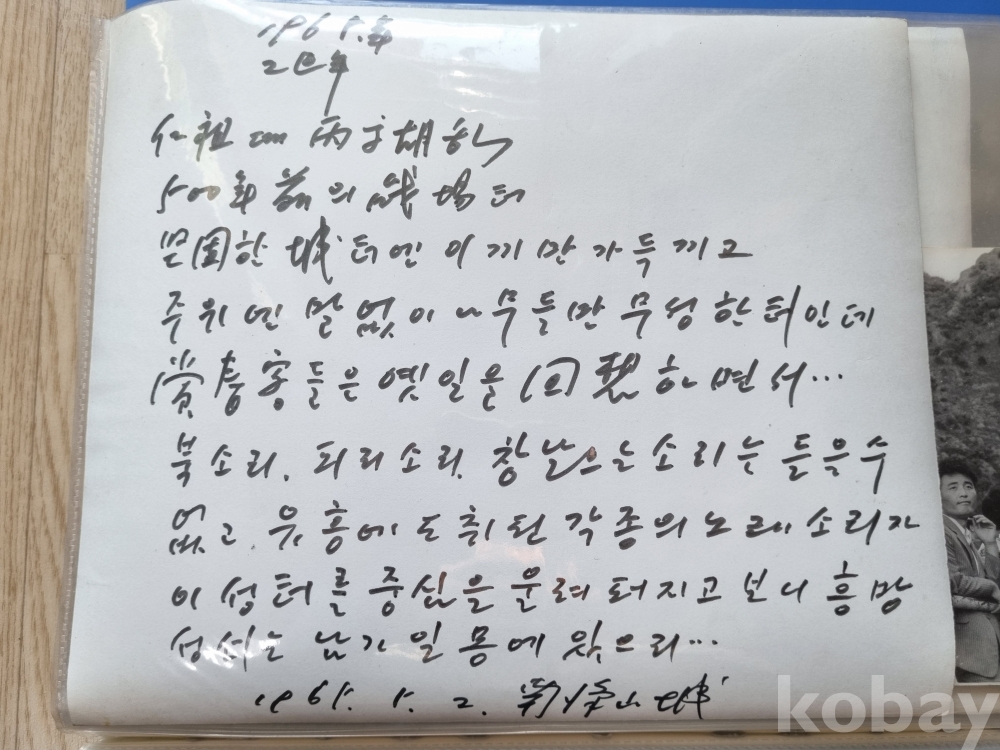 1965.年
2回年
仁祖 때 丙子胡亂
500年前의 戰場터
堅固한 城터엔 이끼만 가득 끼고
주위엔 말없이 나무들만 무성한 터인데
賞春客들은 옛일을 回想하면서...
북소리, 피리소리, 창날으는 소리는 들을 수
없고, 유흥에 도취된 각종의 노래소리가
이 성터를 중심을 울려 퍼지고 보니 흥망
성쇠는 남가일몽에 있으리...
1965. 5. 2. 南漢山城
kobay